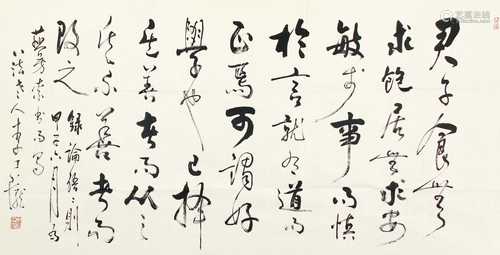 君子食無
求飽居無求安
敏于事而慎
於言就有道而
正焉可謂好
學也已擇
其善者而從之
其不善者而
改之
錄論語二則
甲子六月為
八法老人李